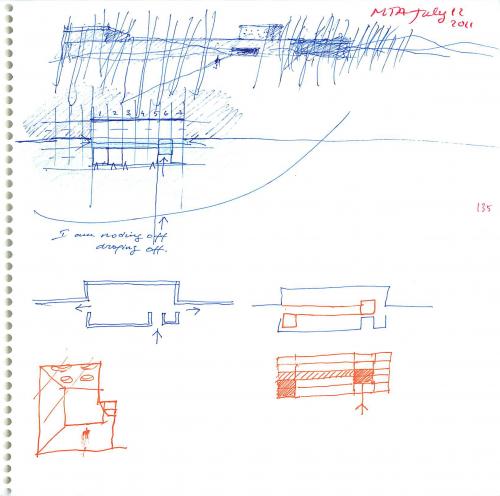 MTA July 12
2011
1 2 3 4 5 6
135
I am noding off
droping off.